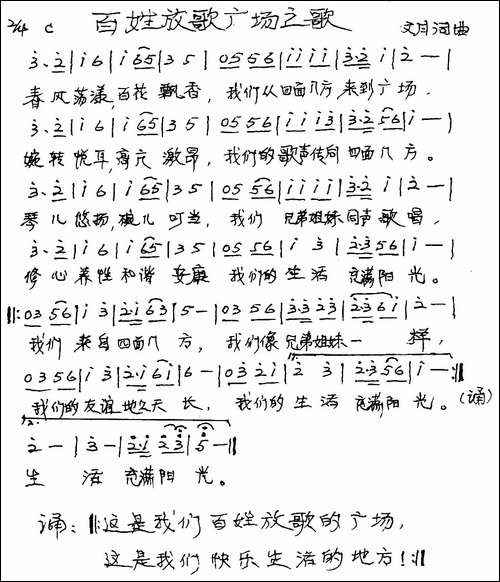 2/4 C 百姓放歌广场之歌 文月词曲
3. 2 | i 6 | i 65 | 3 5 | 05 56 | i i i i | 3·2 i | 2 — |
春风荡漾百花飘香，我们从四面八方来到广场．
3. 2 | i 6 | i 65 | 3 5 | 05 56 | i i i 3 | 3·2 56 | i — |
婉转悦耳高亢激昂，我们的歌声传向四面八方。
3. 2 | i 6 | i 65 | 3 5 | 05 56 | i i i i | 3·2 i | 2 — |
琴儿悠扬，碗儿叮当，我们兄弟姐妹同声歌唱，
3. 2 | i 6 | i 65 | 3 5 | 05 56 | i 3 | 2·3 56 | i — |
修心养性和谐安康 我们的生活充满阳光。
‖: 03 56 | i 3 | 2·i 63 | 5 — | 03 56 | 3·3 23 | 2·3 6i | 2 — |
我们来自四面八方，我们像兄弟姐妹一样，
03 56 | i 3 | 2·i 6i | 6 — | 03 2i | 2 3 | 2·3 56 | i — :‖
我们的友谊地久天长，我们的生活充满阳光。(诵)
2 — | 3 — | 2·i 23 | 5 — ‖
生活充满阳光。
诵：‖:这是我们百姓放歌的广场，
这是我们快乐生活的地方！:‖